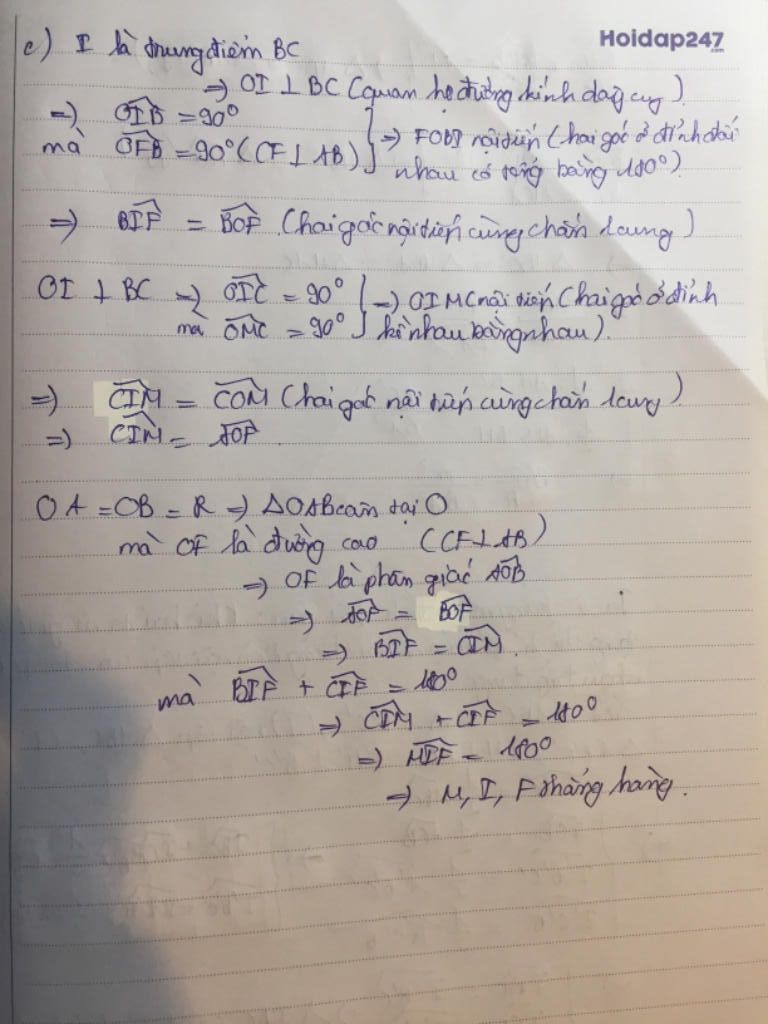 Hoidap247
.com
c) I là trung điểm BC
=> OI ⊥ BC (quan hệ đường kính dây cung)
=> OIB = 90°
mà OFB = 90° (CF ⊥ AB) } => FOBI nội tiếp (hai góc ở đỉnh đối
nhau có tổng bằng 180°)
=> BIF = BOF (hai góc nội tiếp cùng chắn 1 cung)
OI ⊥ BC => OIC = 90°
mà OMC = 90° } => OIMC nội tiếp (hai góc ở đỉnh
kề nhau bằng nhau).
=> CIM = COM (hai góc nội tiếp cùng chắn 1 cung)
=> CIM = AOF.
OA = OB = R => ΔOAB cân tại O
mà OF là đường cao (CF ⊥ AB)
=> OF là phân giác AOB
=> AOF = BOF
=> BIF = CIM.
mà BIF + CIF = 180°
=> CIM + CIF = 180°
=> MIF = 180°
=> M, I, F thẳng hàng.